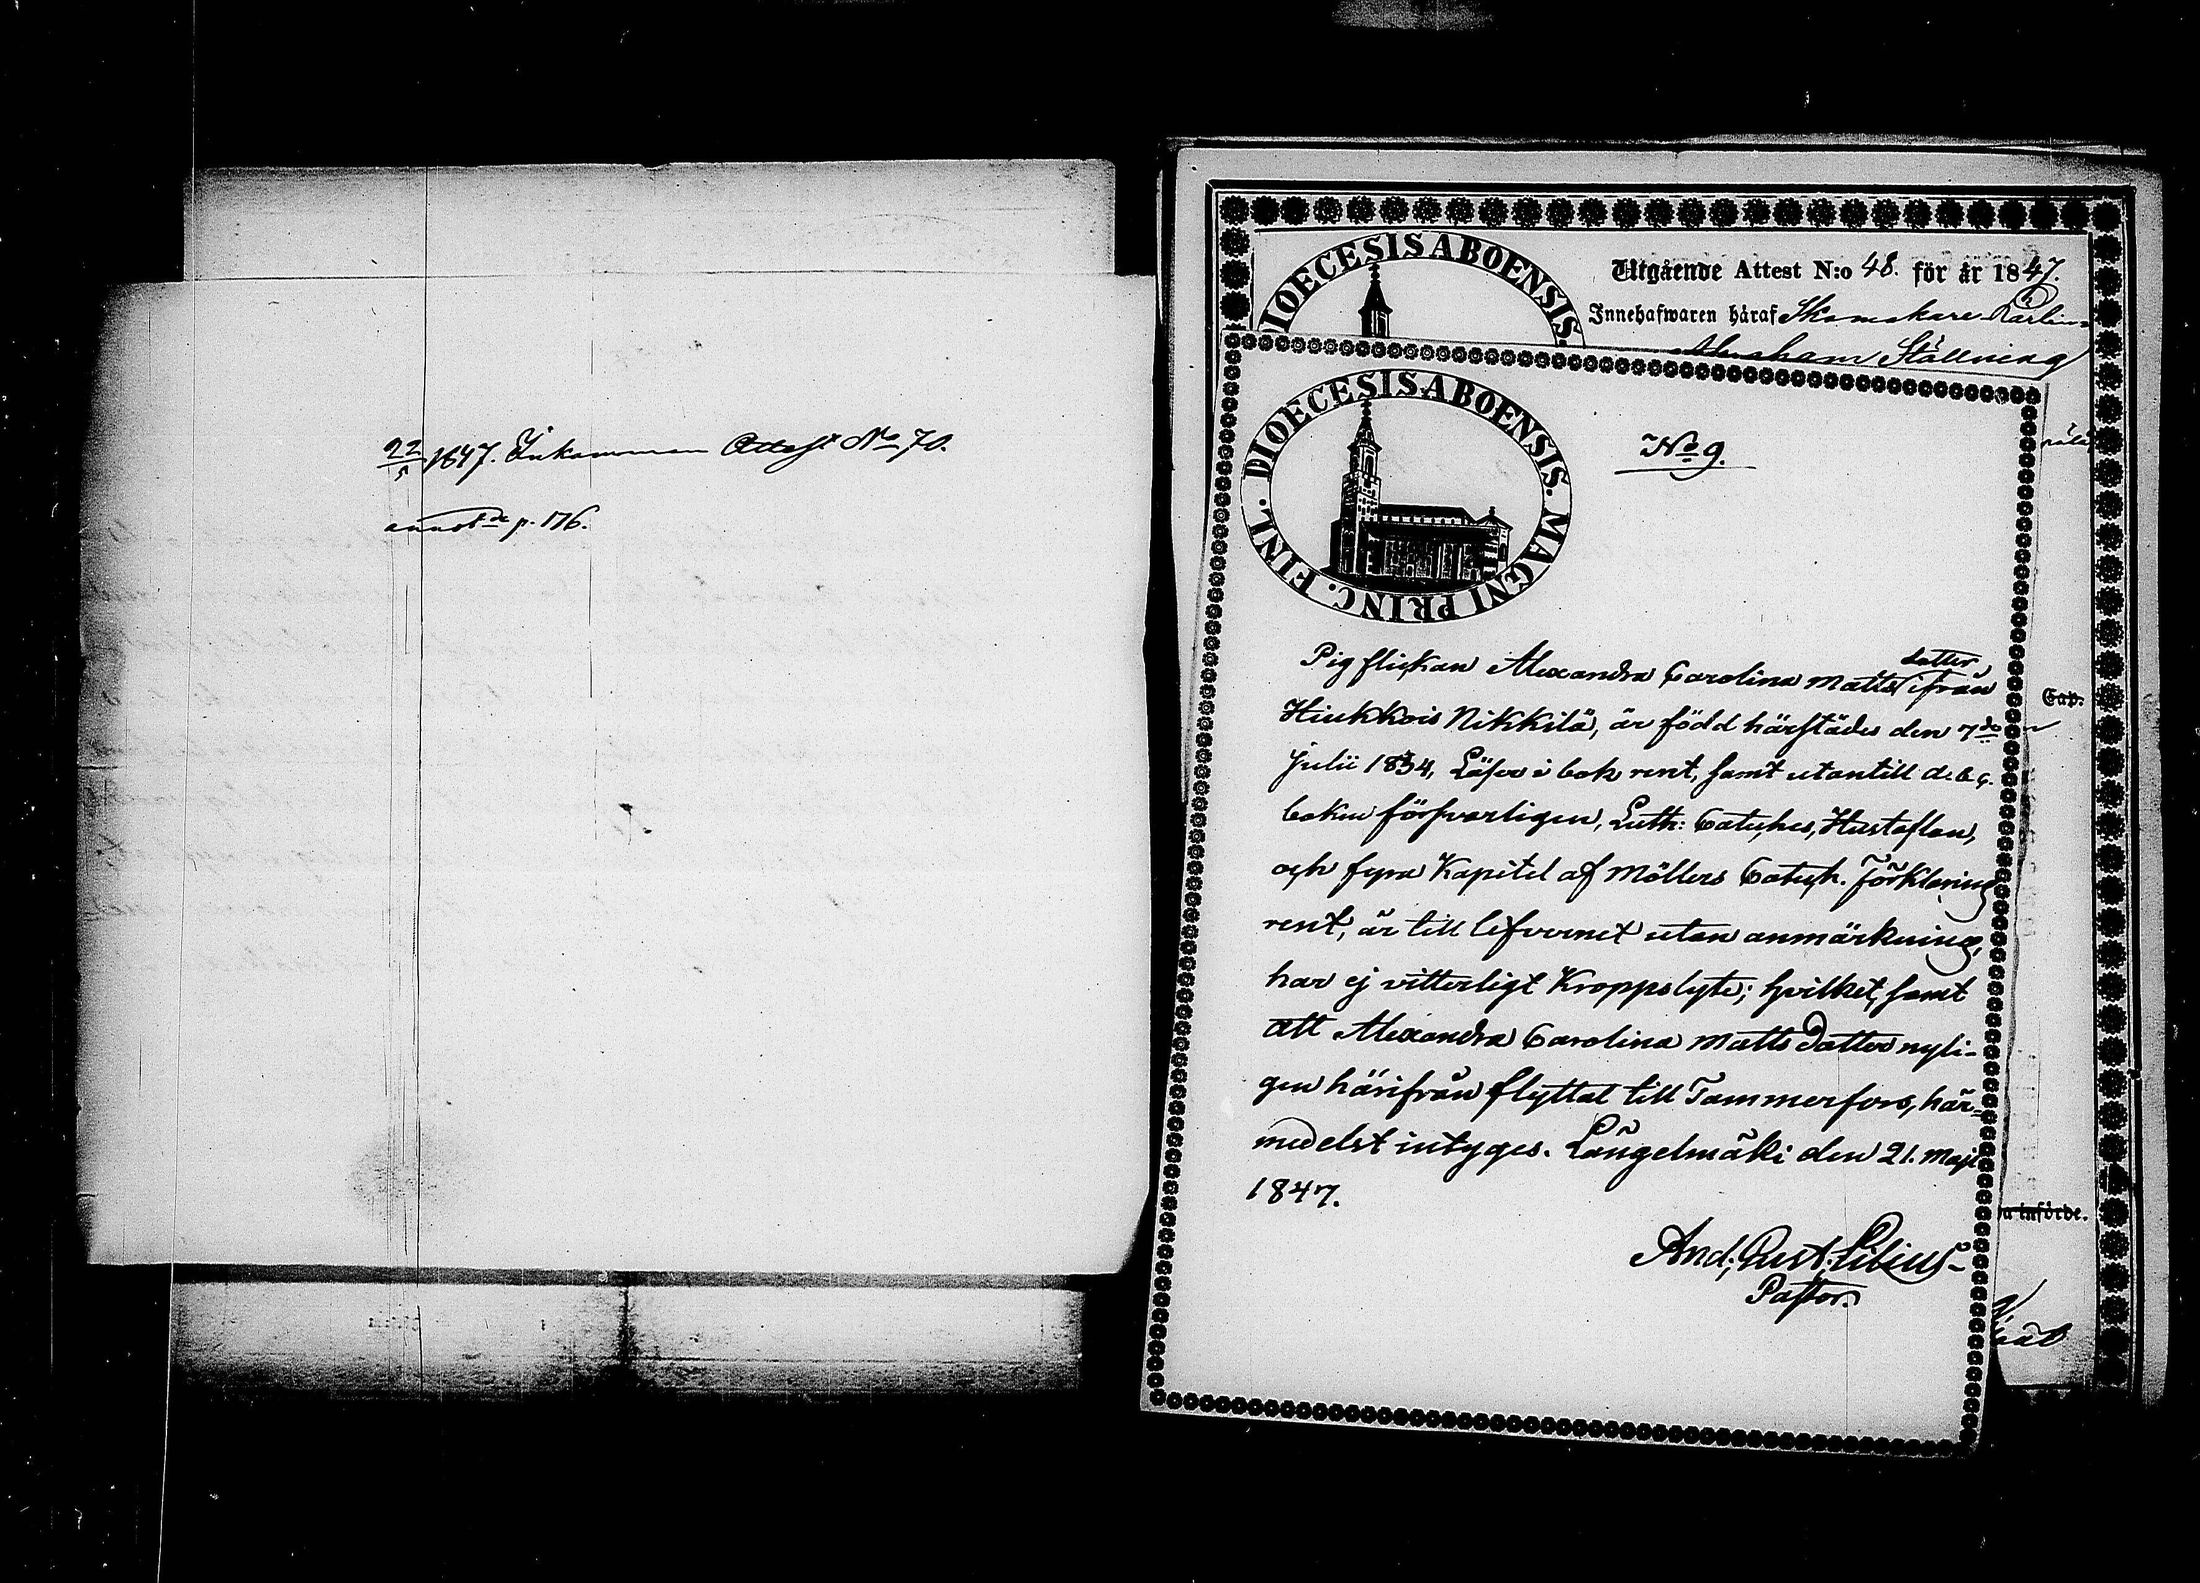 22/5 1847. Inkommen Attest No 70.
annot:de p. 176.
DIOECESIS ABOENSIS.
Utgående Attest N:o 48. för år 1847.
Innehafwaren håraf Skomakare
Abraham Ställning
DIOECESIS ABOENSIS. MAGNI PRINC. FINL.
No 9.
Pigflickan Alexandra Carolina Matts dotter ifrån
Hiukkois Nikkilä, är född härstädes den 7de
Julii 1834, Läser i bok rent, samt utantill a.b.c.
boken försvarligen, Luth: Cateches, Hustaflan,
och fyra Kapitel af Möllers Catech. Förklaring
rent, är till lefvernet utan anmärkning,
har ej vitterligt Kroppslyte; hvilket, samt
att Alexandra Carolina Matts Dotter nyli-
gen härifrån flyttat till Tammerfors, här-
medelst intyges. Längelmäki den 21. Maji
1847.
And: Gust: Lilius
Pastor.
Cap.
införde.